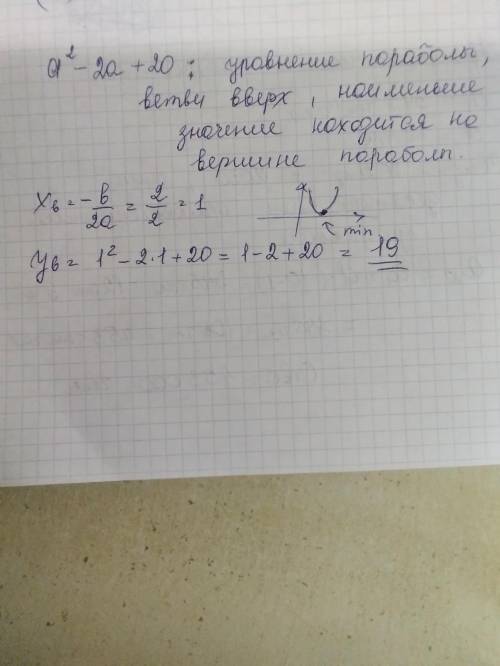 a² - 2a + 20 : уравнение параболы,
ветви вверх, наименьше
значение находится на
вершине параболы.
Xв = -в/2a = 2/2 = 1
min
Yв = 1² - 2·1 + 20 = 1 - 2 + 20 = 19